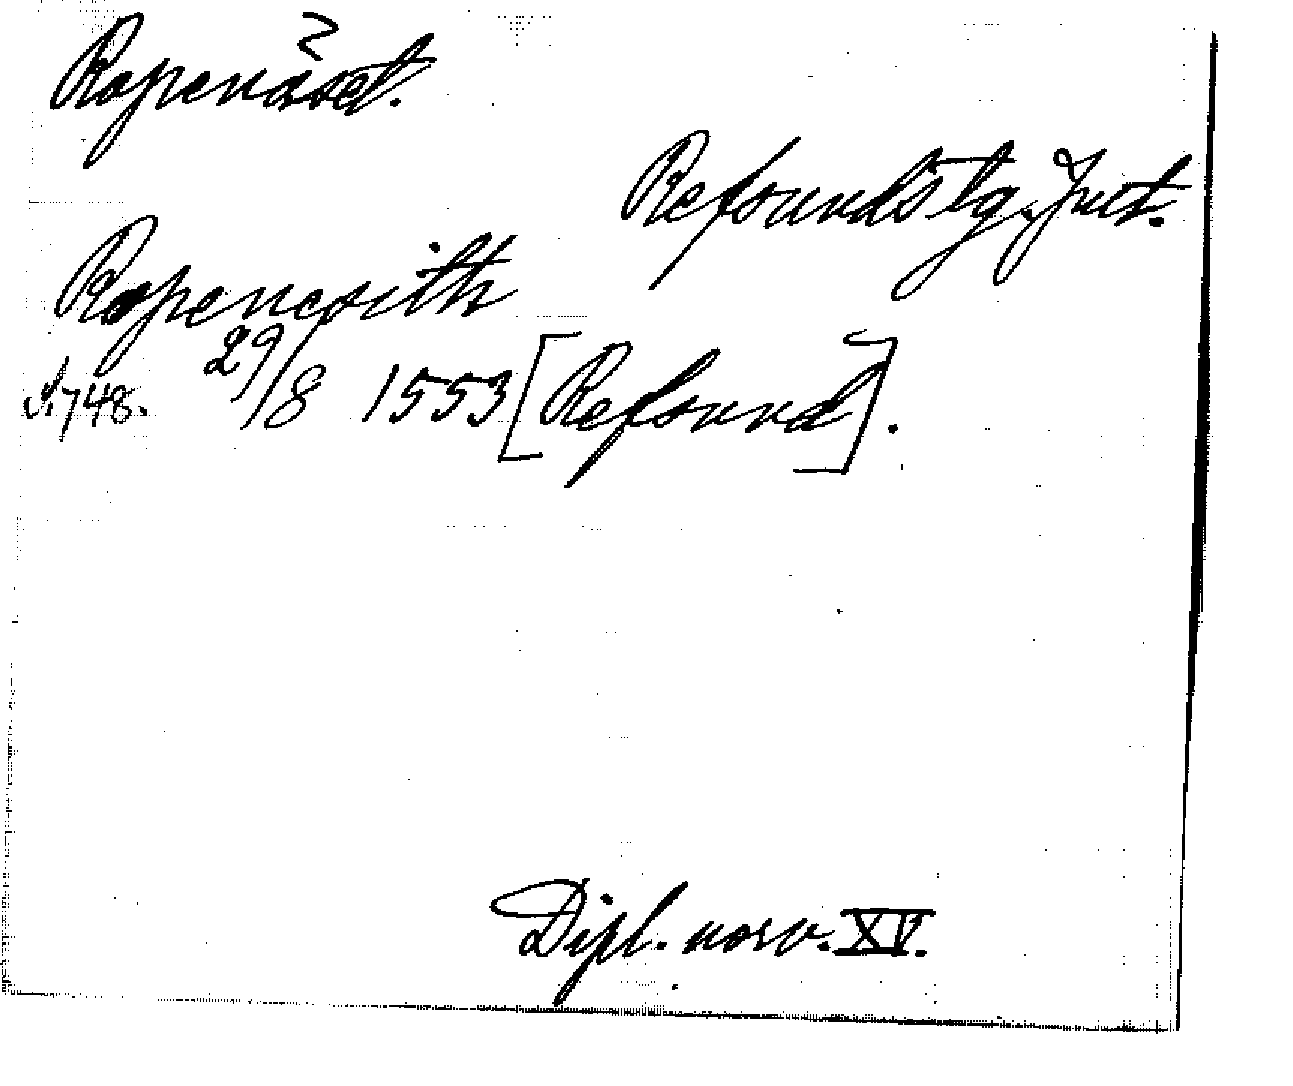 Ropenäset.
Refsunds tg. Jmt.
Ropenesith
S. 748. 29/8 1553 [Refsund].
Dipl. norv. XV.